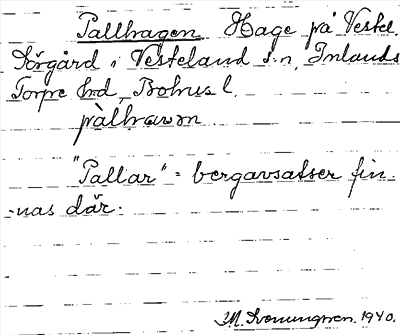 Pallhagen. Hage på Vestel.
Sörgård i Vesteland s:n, Inlands
Torpe hd, Bohus l.
pàlhawən
"Pallar" = bergavsatser fin-
-nas där.
M. 1940.